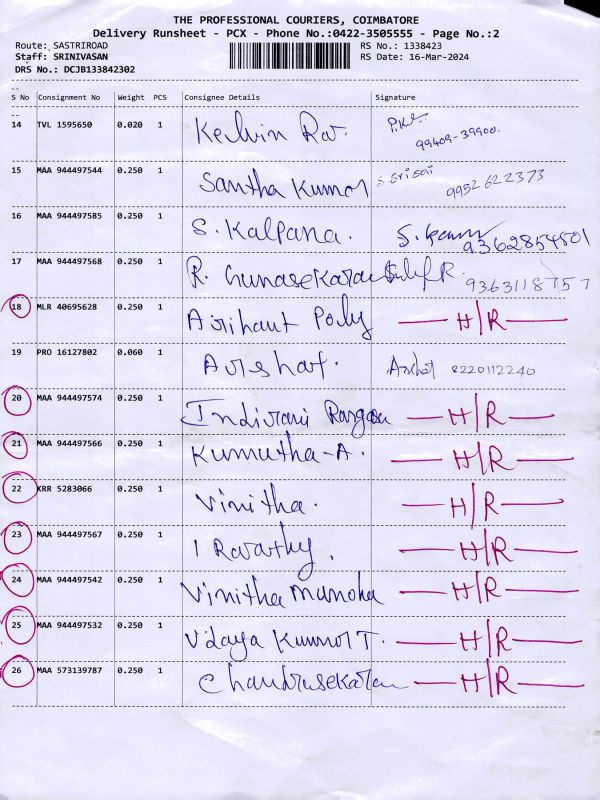 THE PROFESSIONAL COURIERS, COIMBATORE
Delivery Runsheet - PCX - Phone No.:0422-3505555 - Page No.:2
Route: SASTRIROAD RS No.: 1338423
Staff: SRINIVASAN RS Date: 16-Mar-2024
DRS No.: DCJB133842302
--
S No Consignment No Weight PCS Consignee Details Signature
--
14 TVL 1595650 0.020 1 Kelvin 99409-39900.
15 MAA 944497544 0.250 1 Santha Kumar S. Srisai 9952622373
16 MAA 944497585 0.250 1 S. Kalpana. 9362854801
17 MAA 944497568 0.250 1 R. Gunasekaran 9363118757
18 MLR 40695628 0.250 1 Arihant Poly H/R
19 PRO 16127802 0.060 1 Arshaf. Arshaf 8220112240
20 MAA 944497574 0.250 1 Indirani Rangan H/R
21 MAA 944497566 0.250 1 Kumutha-A. H/R
22 KRR 5283066 0.250 1 Vinitha. H/R
23 MAA 944497567 0.250 1 I Ravathy. H/R
24 MAA 944497542 0.250 1 Vinitha Manoha H/R
25 MAA 944497532 0.250 1 Udaya Kumar T. H/R
26 MAA 573139787 0.250 1 Chandrasekaran H/R